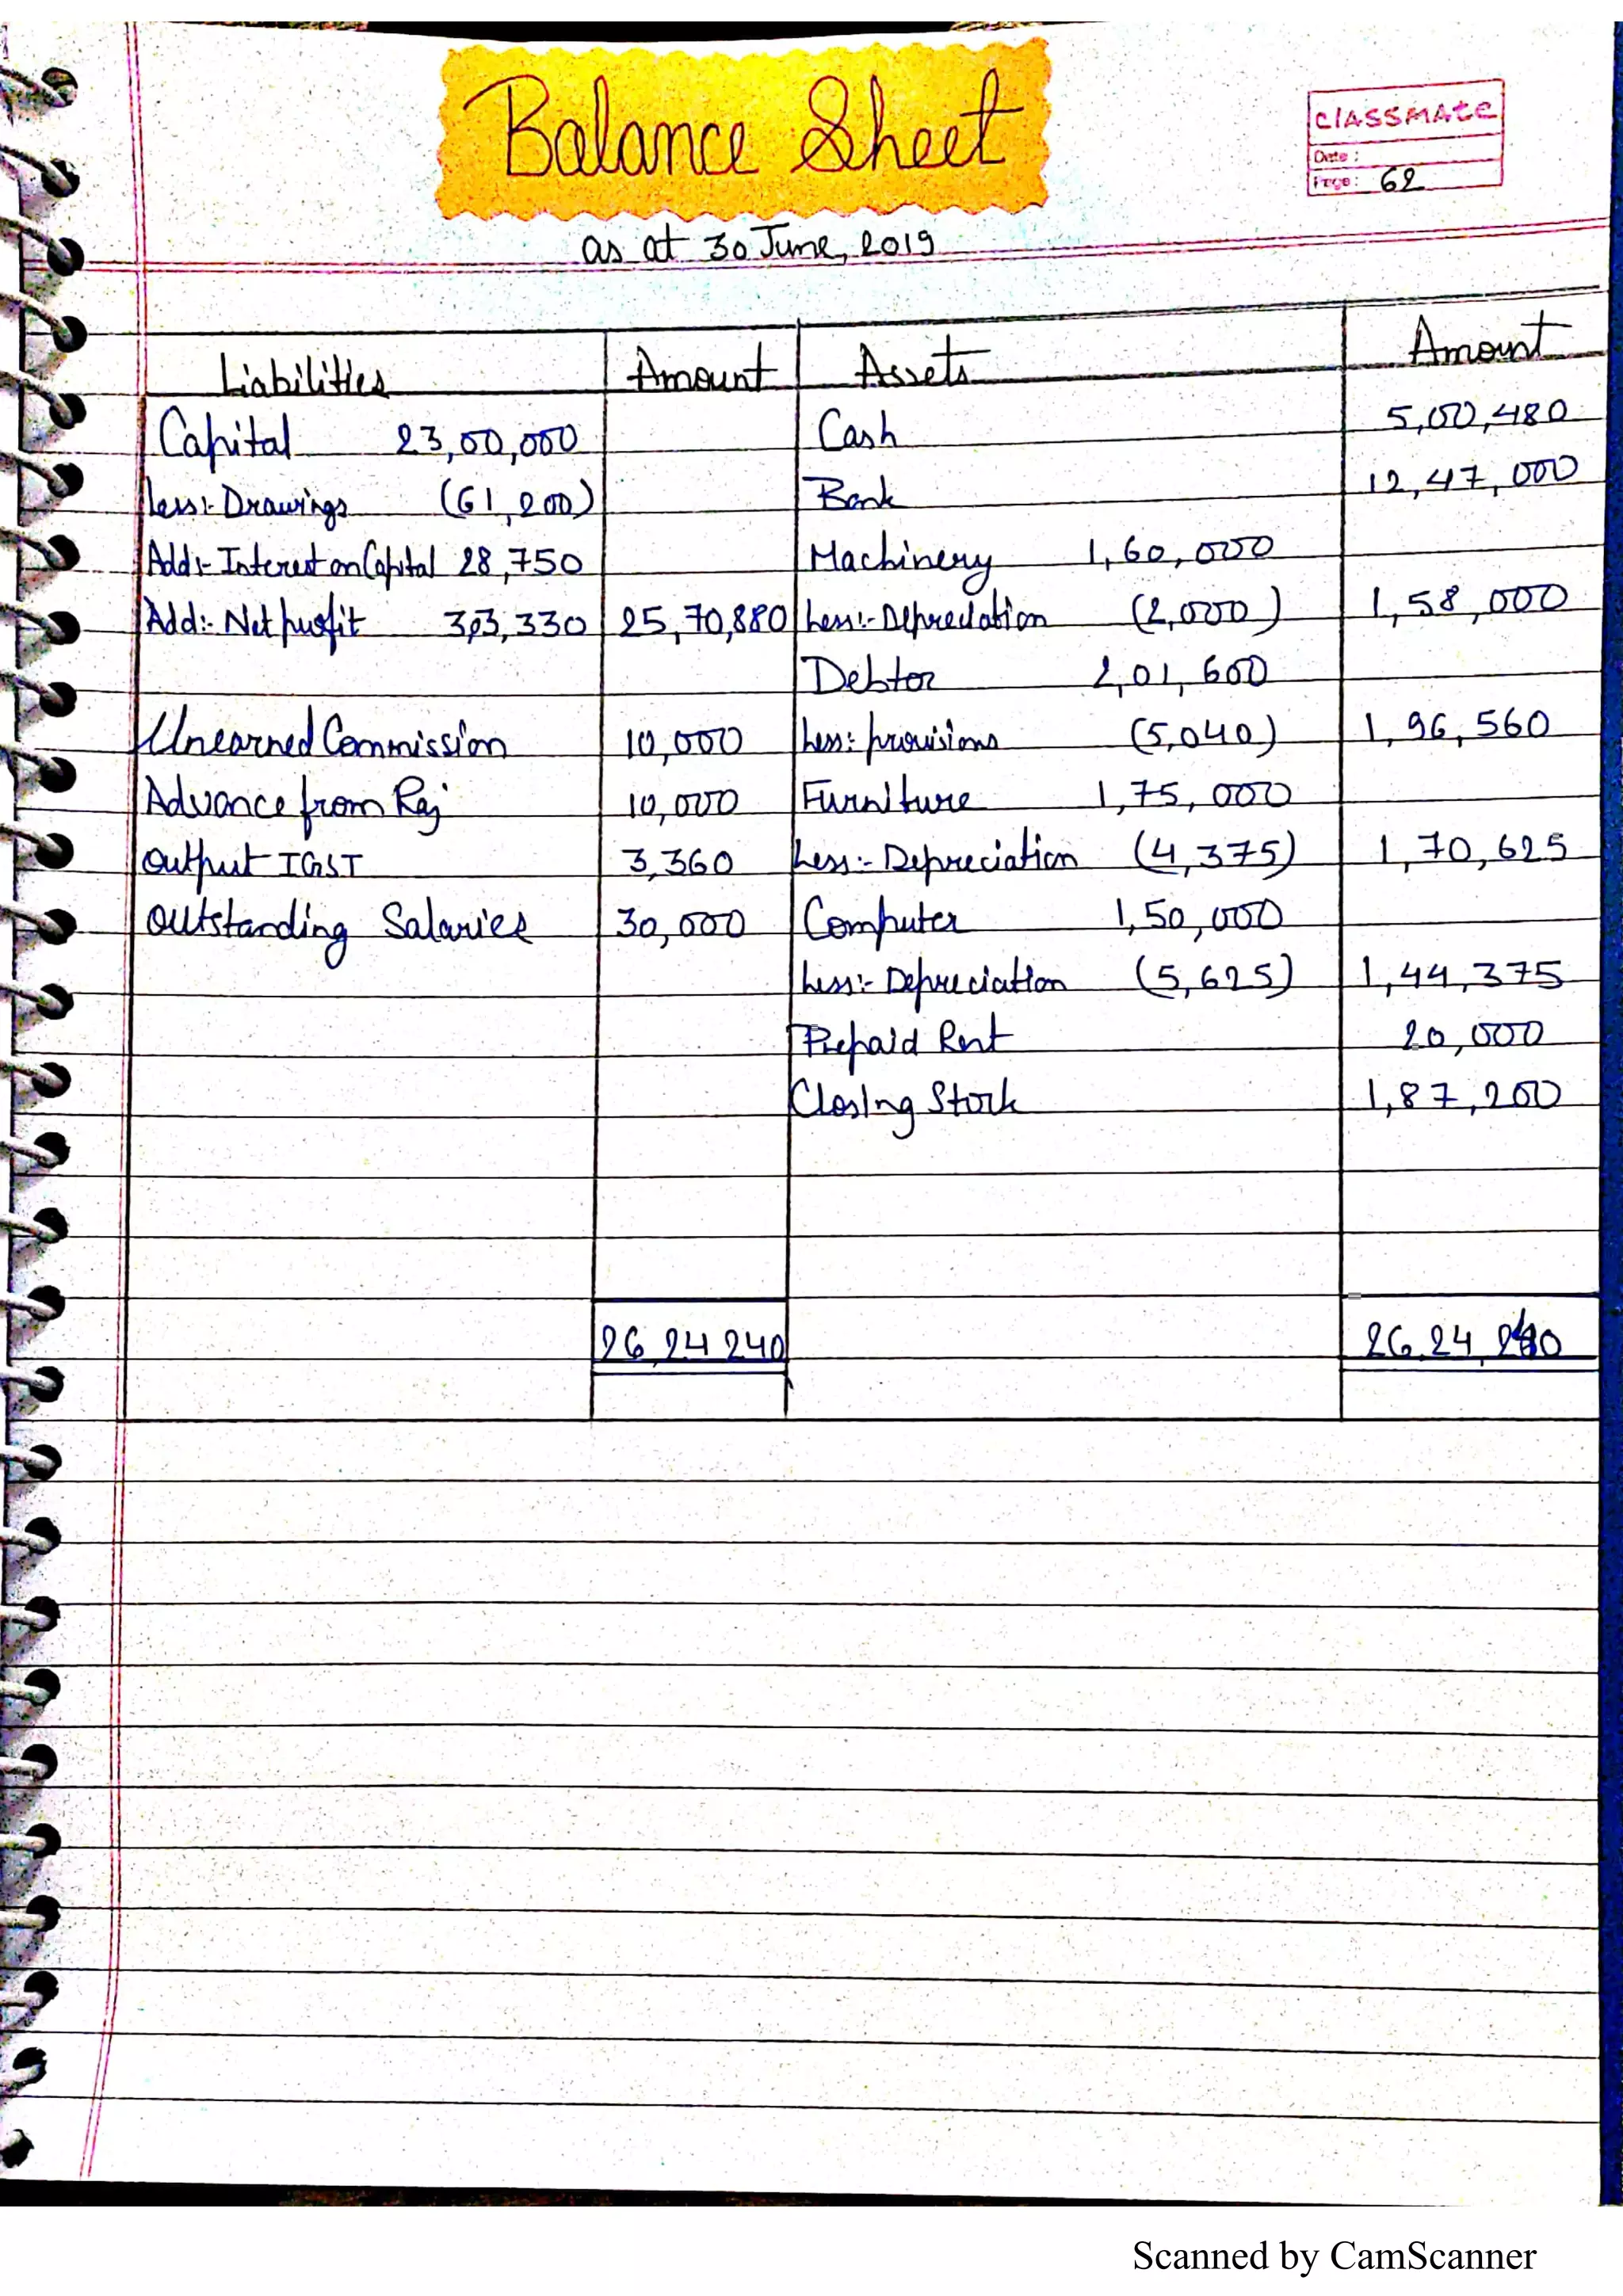 Balance Sheet
CLASSMATE
Date :
Page: 62
as at 30 June, 2019
Liabilities Amount Assets Amount
Capital 23,00,000 Cash 5,00,480
Less:- Drawings (61,200) Bank 12,47,000
Add:- Interest on Capital 28,750 Machinery 1,60,000
Add:- Net profit 303,330 25,70,880 Less:- Depreciation (2,000) 1,58,000
Debtor 2,01,600
Unearned Commission 10,000 Less: provisions (5,040) 1,96,560
Advance from Raj 10,000 Furniture 1,75,000
Output IGST 3,360 Less:- Depreciation (4,375) 1,70,625
Outstanding Salaries 30,000 Computer 1,50,000
Less:- Depreciation (5,625) 1,44,375
Prepaid Rent 20,000
Closing Stock 1,87,200
26,24,240 26,24,240
Scanned by CamScanner